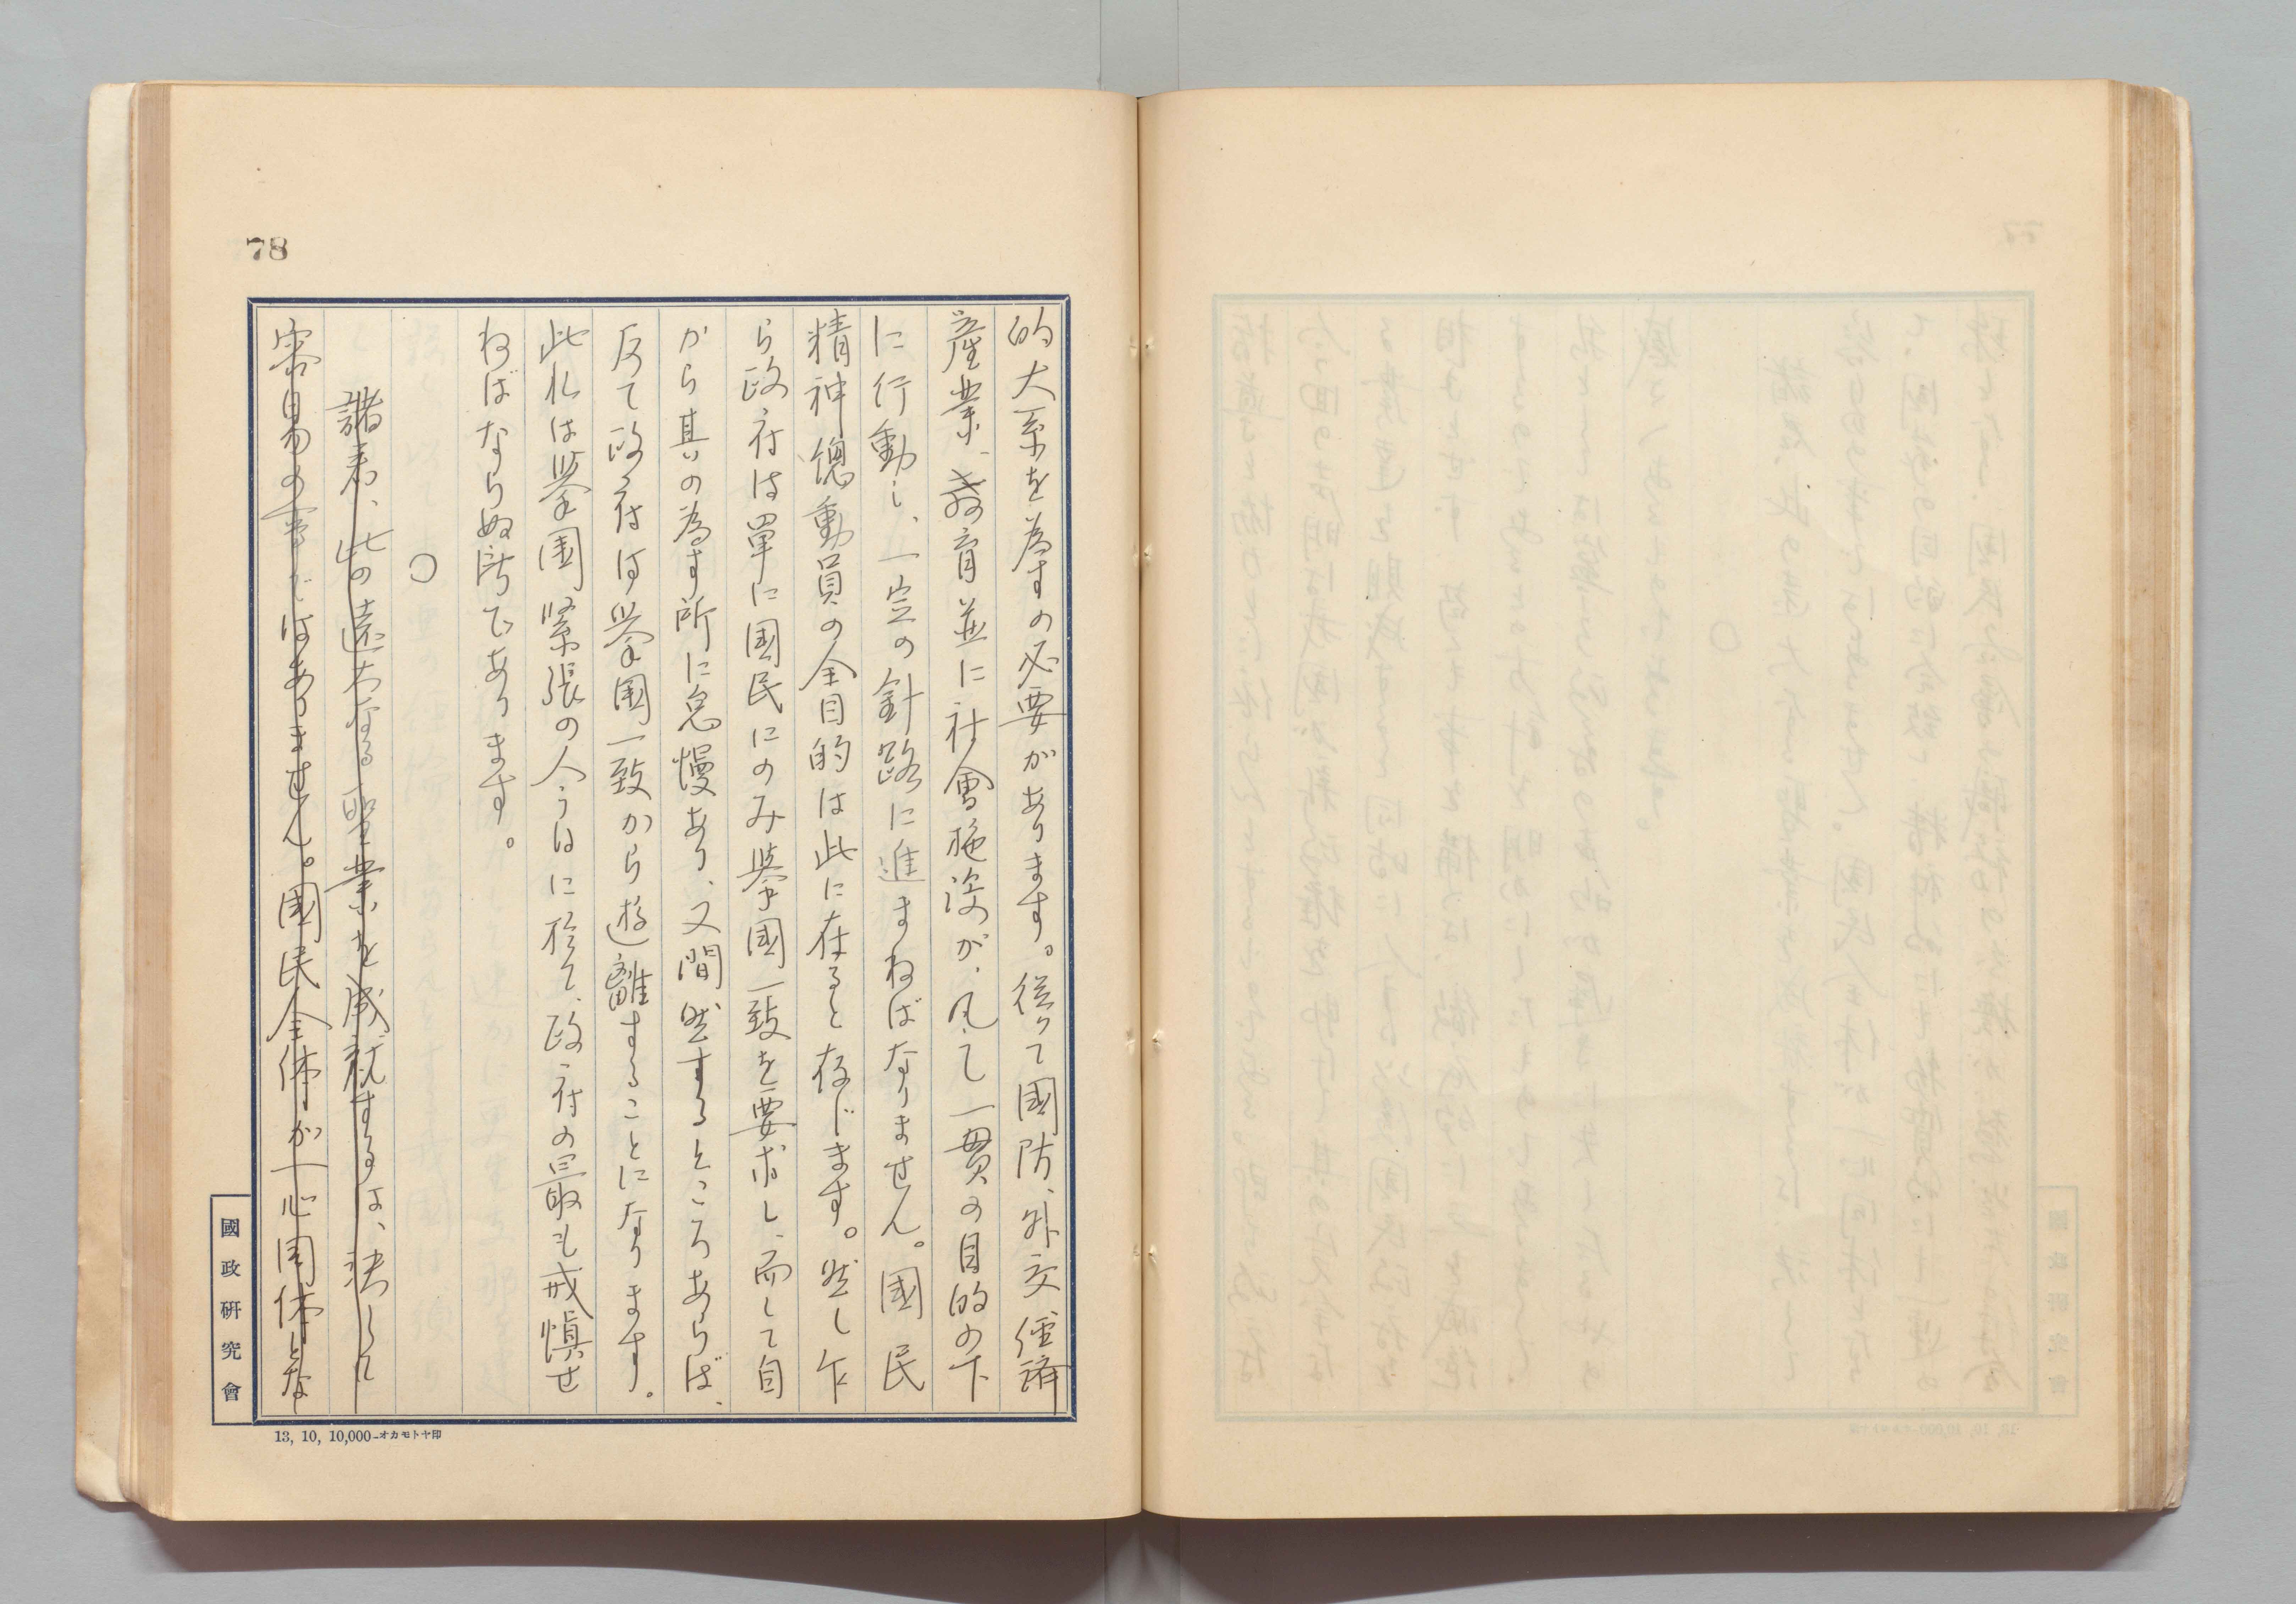 78
的大系を為すの必要があります。従つて國防、外交、經濟
産業、教育並に社會施設が、凡て一貫の目的の下
に行動し、一定の針路に進まねばなりません。國民
精神総動員の全目的は此に在ると存じます。然し乍
ら政府は単に国民にのみ挙国一致を要求し、而して自
から其の為す所に怠慢あり、又間然するところあらば、
反て政府は挙国一致から遊離することになります。
此れは挙国緊張の今日に於て、政府の最も戒慎せ
ねばならぬ所であります。
〇
諸君、此の遠大なる聖業を成就するは、決して
容易の事ではありません。國民全体が一心同体とな
國政研究會
13, 10, 10,000-オカモトヤ印